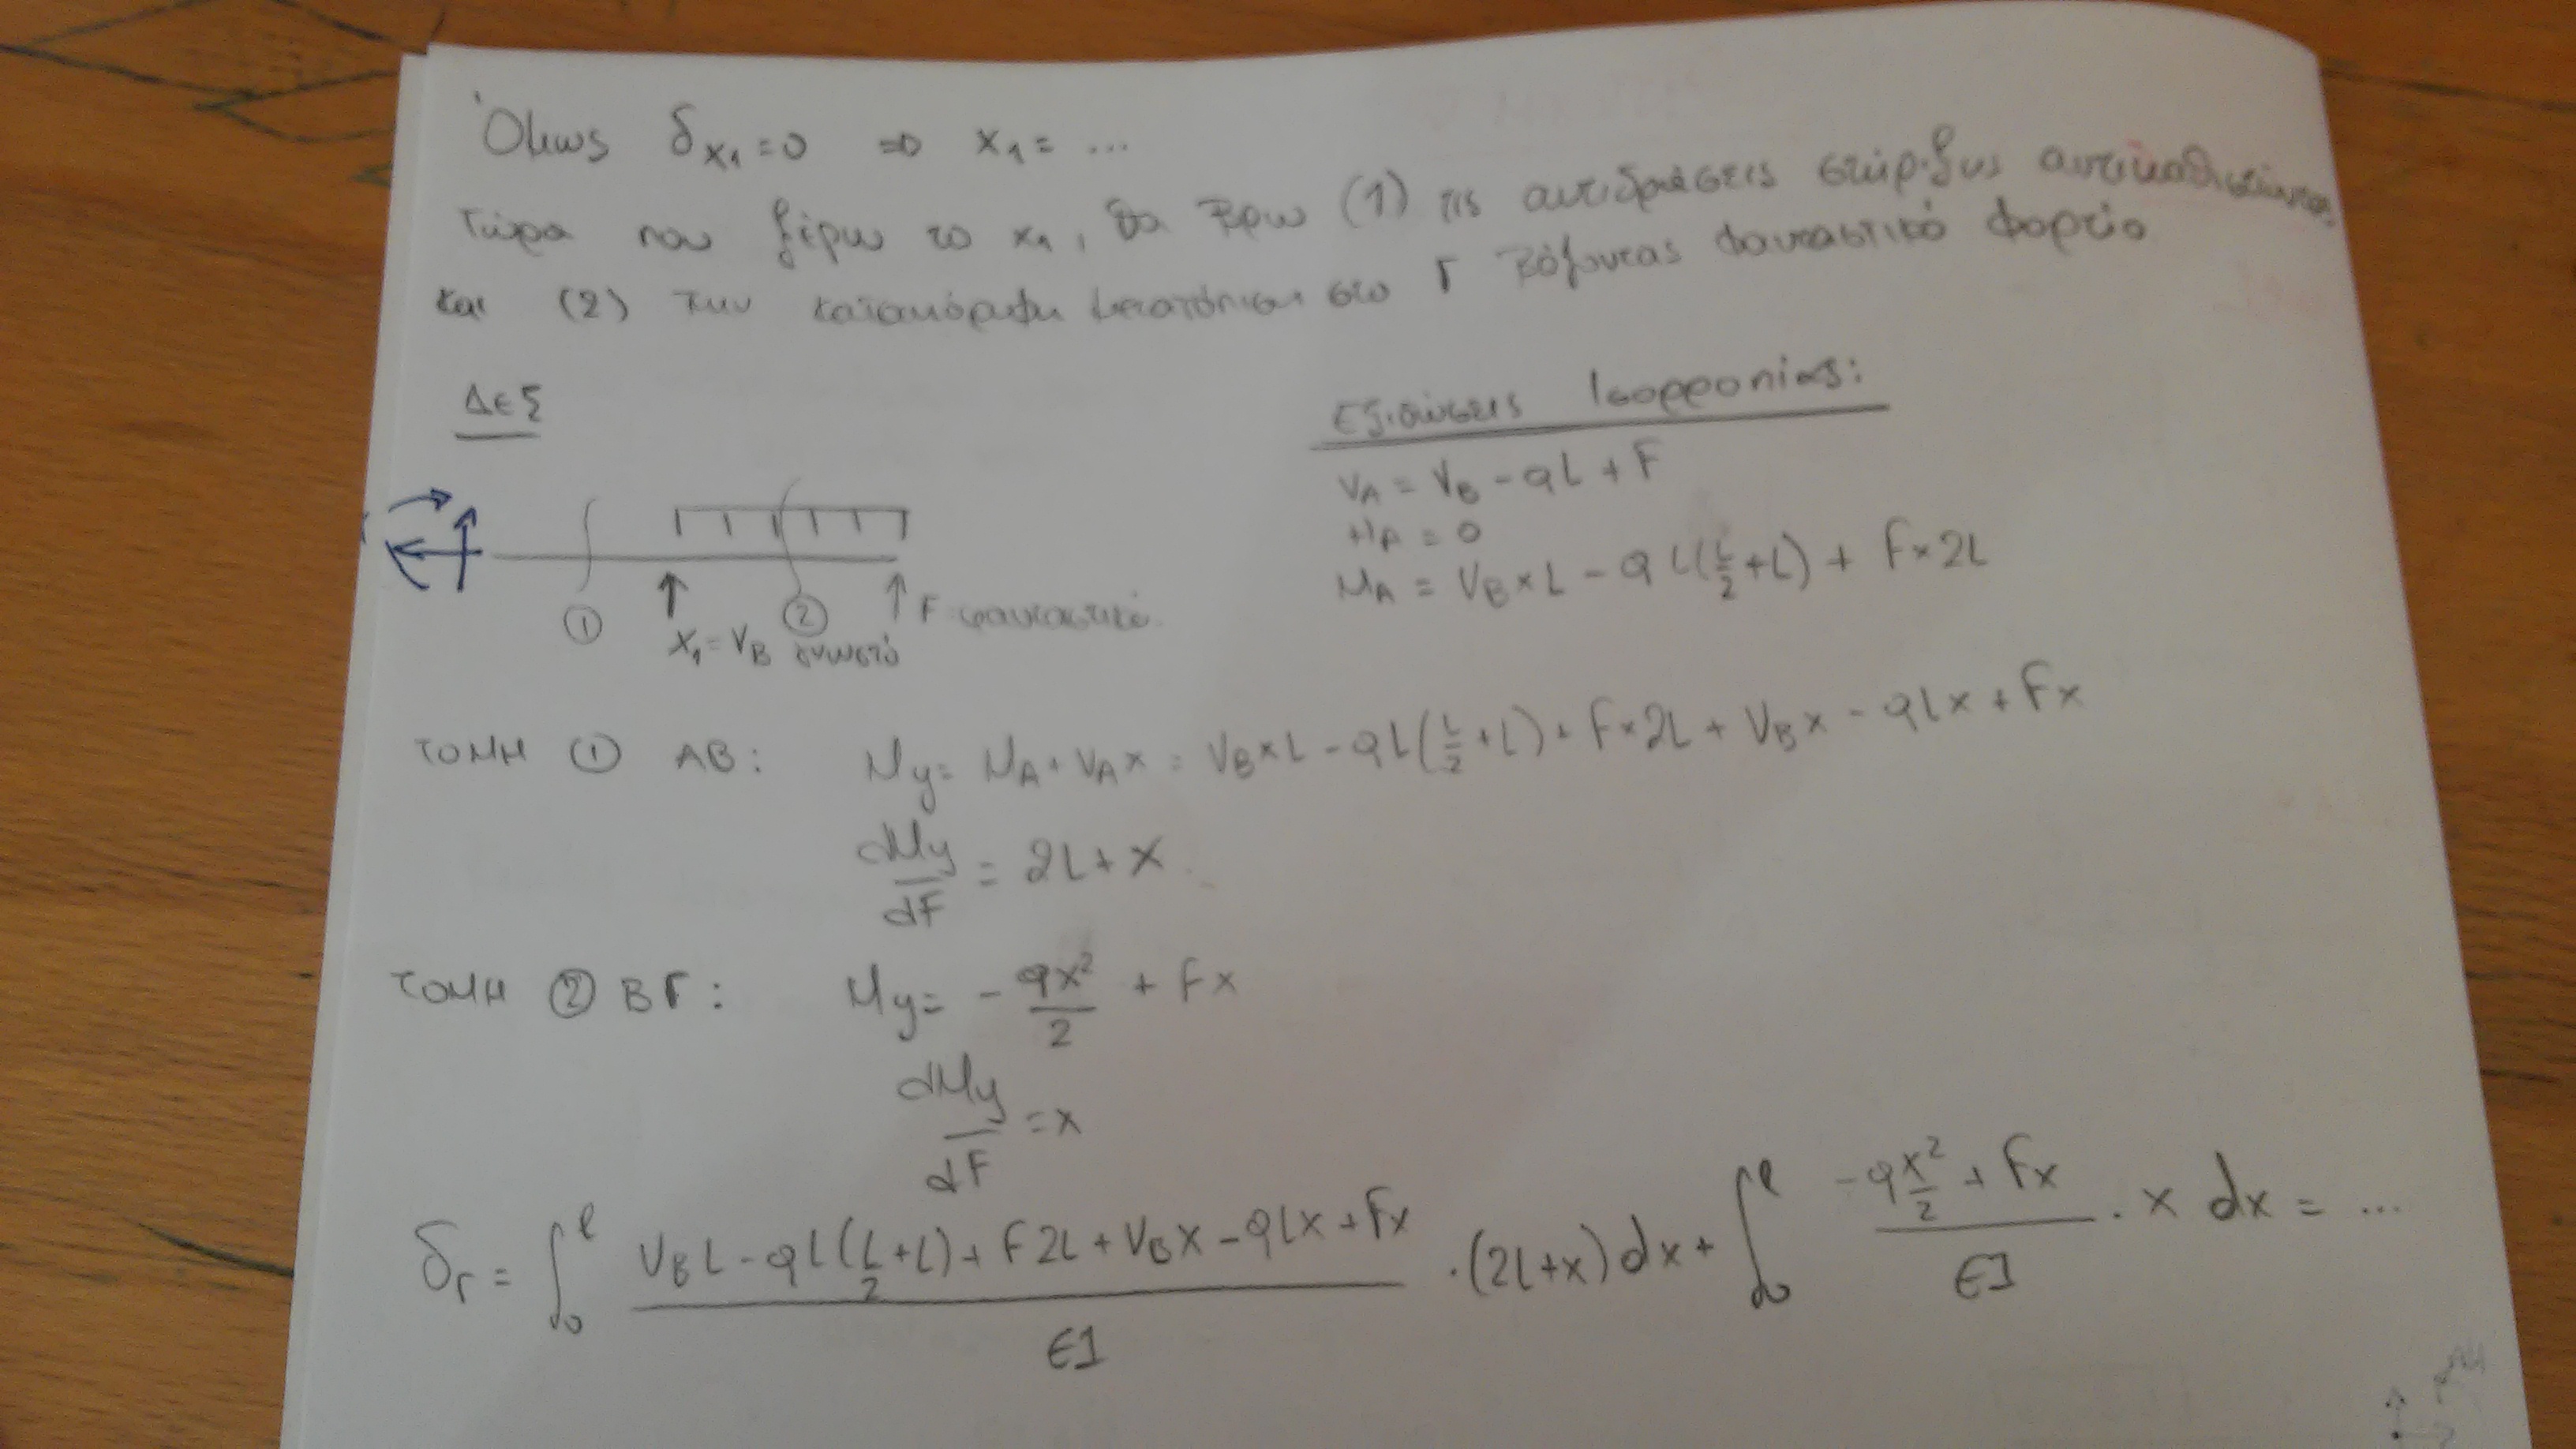 Όμως δx₁=0 ⇒ x₁= ...
Τώρα που ξέρω το x₁, θα βρω (1) τις αντιδράσεις στήριξης αντικαθιστώντας
και (2) την κατακόρυφη μετατόπιση στο Γ βάζοντας φανταστικό φορτίο
ΔΕΣ
Εξισώσεις Ισορροπίας:
VA = VB - qL + F
HA = 0
MA = VB×L - qL(L/2+L) + F×2L
① ② F φανταστικό.
x₁=VB γνωστό
ΤΟΜΗ ① ΑΒ: My= MA + VA x = VB×L - qL(L/2+L) + F×2L + VBx - qLx + Fx
dMy/dF = 2L+x
ΤΟΜΗ ② ΒΓ: My= - qx²/2 + Fx
dMy/dF =x
δΓ = ∫₀ˡ (VBL - qL(L/2+L) + F2L + VBx - qLx + Fx)/EI · (2L+x)dx + ∫₀ˡ (-qx²/2 + Fx)/EI · x dx = ...